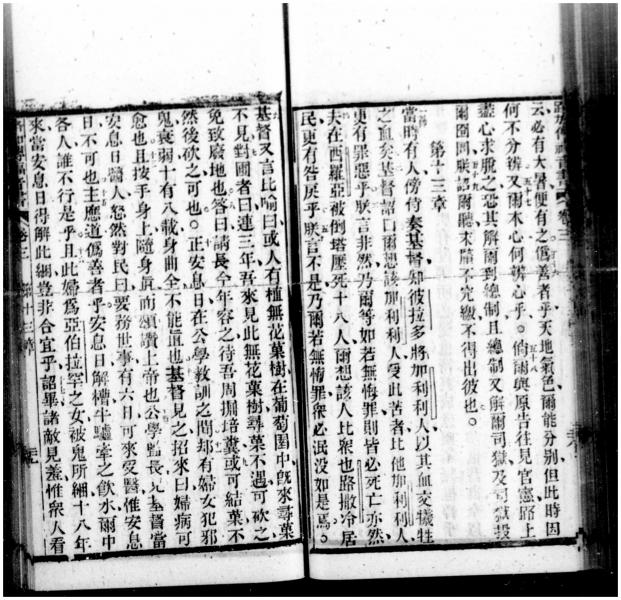 云必有大暑便有之僞善者乎天地氣色爾能分别但此時因
何不分辨又爾本心何辨心乎。倘爾與原吿往見官憲路上
盡心求脫之恐其解爾到總制且總制又解爾司獄及司獄投
爾囹圄朕語爾聽末釐不完繳不得出彼也。
第十三章
當時有人傍侍奏基督知彼拉多將加利利人以其血交犧牲
之血矣基督諂口爾想該加利利人受此苦者比他加利利人
更有罪惡乎朕言非然乃爾等如若無悔罪則皆必死亡亦然
夫在西羅亞被倒塔壓死十八人爾想該人比衆也路撒冷居
民更有咎戾乎朕言不是乃爾若無悔罪衆必泯没如是焉。
基督又言比喻曰或人有植無花菓樹在葡萄園中旣來尋菓
不見對圃者曰連三年吾來見此無花菓樹尋菓不遇可砍之
免致廢地也答曰請長今年容之待吾周掘培糞或可結菓不
然後砍之可也。正安息日在公學敎訓之間却有婦女犯邪
鬼衰弱十有八載身曲全不能直也基督見之招來曰婦病可
愈也且按手身上隨身直而頌讚上帝也公學長見基督當
安息日醫人忽然對民曰要務世事有六日可來受醫惟安息
日不可也主應道僞善者乎安息日解槽牛驢牽之飮水爾中
各人誰不行是乎且此婦爲亞伯拉罕之女被鬼所綑十八年
來當安息日得解此綑豈非合宜乎詔畢諸敵見羞惟衆人看
第十三章